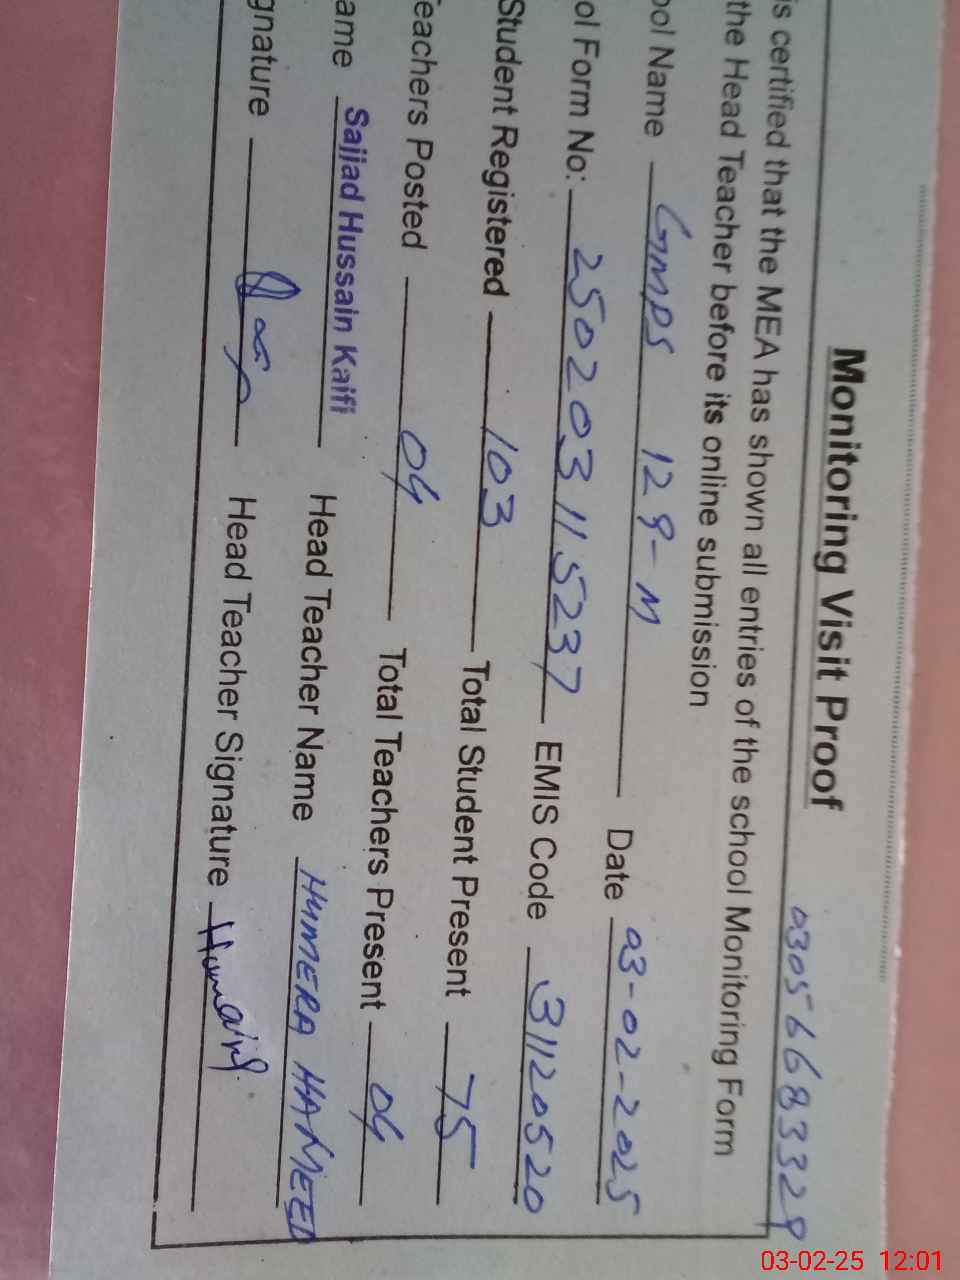 03056683329
Monitoring Visit Proof
is certified that the MEA has shown all entries of the school Monitoring Form
the Head Teacher before its online submission
ool Name GMPS 129-M Date 03-02-2025
ol Form No: 250203115237 EMIS Code 31120520
Student Registered 103 Total Student Present 75
eachers Posted 04 Total Teachers Present 04
ame Sajjad Hussain Kaifi Head Teacher Name HUMERA HAMEED
gnature Head Teacher Signature
03-02-25 12:01